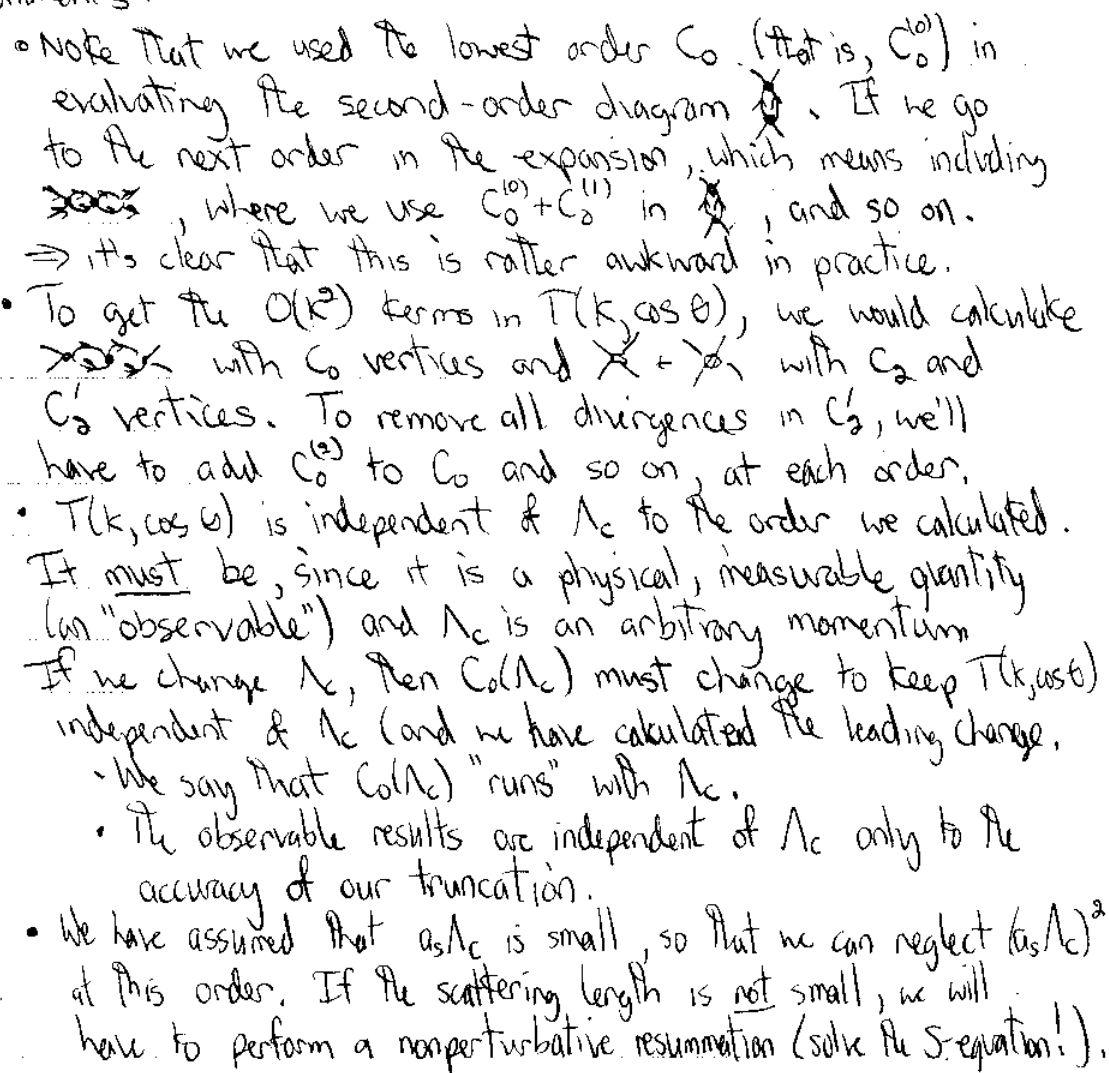 • Note that we used the lowest order C₀ (that is, C₀⁽⁰⁾) in
evaluating the second-order diagram . If we go
to the next order in the expansion, which means including
, where we use C₀⁽⁰⁾+C₀⁽¹⁾ in , and so on.
⇒ it's clear that this is rather awkward in practice.
• To get the O(k²) terms in T(k, cos θ), we would calculate
with C₀ vertices and + with C₂ and
C₂′ vertices. To remove all divergences in C₂′, we'll
have to add C₀⁽²⁾ to C₀ and so on, at each order.
• T(k, cos θ) is independent of Λc to the order we calculated.
It must be, since it is a physical, measurable quantity
(an "observable") and Λc is an arbitrary momentum
If we change Λc, then C₀(Λc) must change to keep T(k, cos θ)
independent of Λc (and we have calculated the leading change.
• We say that C₀(Λc) "runs" with Λc.
• The observable results are independent of Λc only to the
accuracy of our truncation.
• We have assumed that asΛc is small, so that we can neglect (asΛc)²
at this order. If the scattering length is not small, we will
have to perform a nonperturbative resummation (solve the S-equation!).